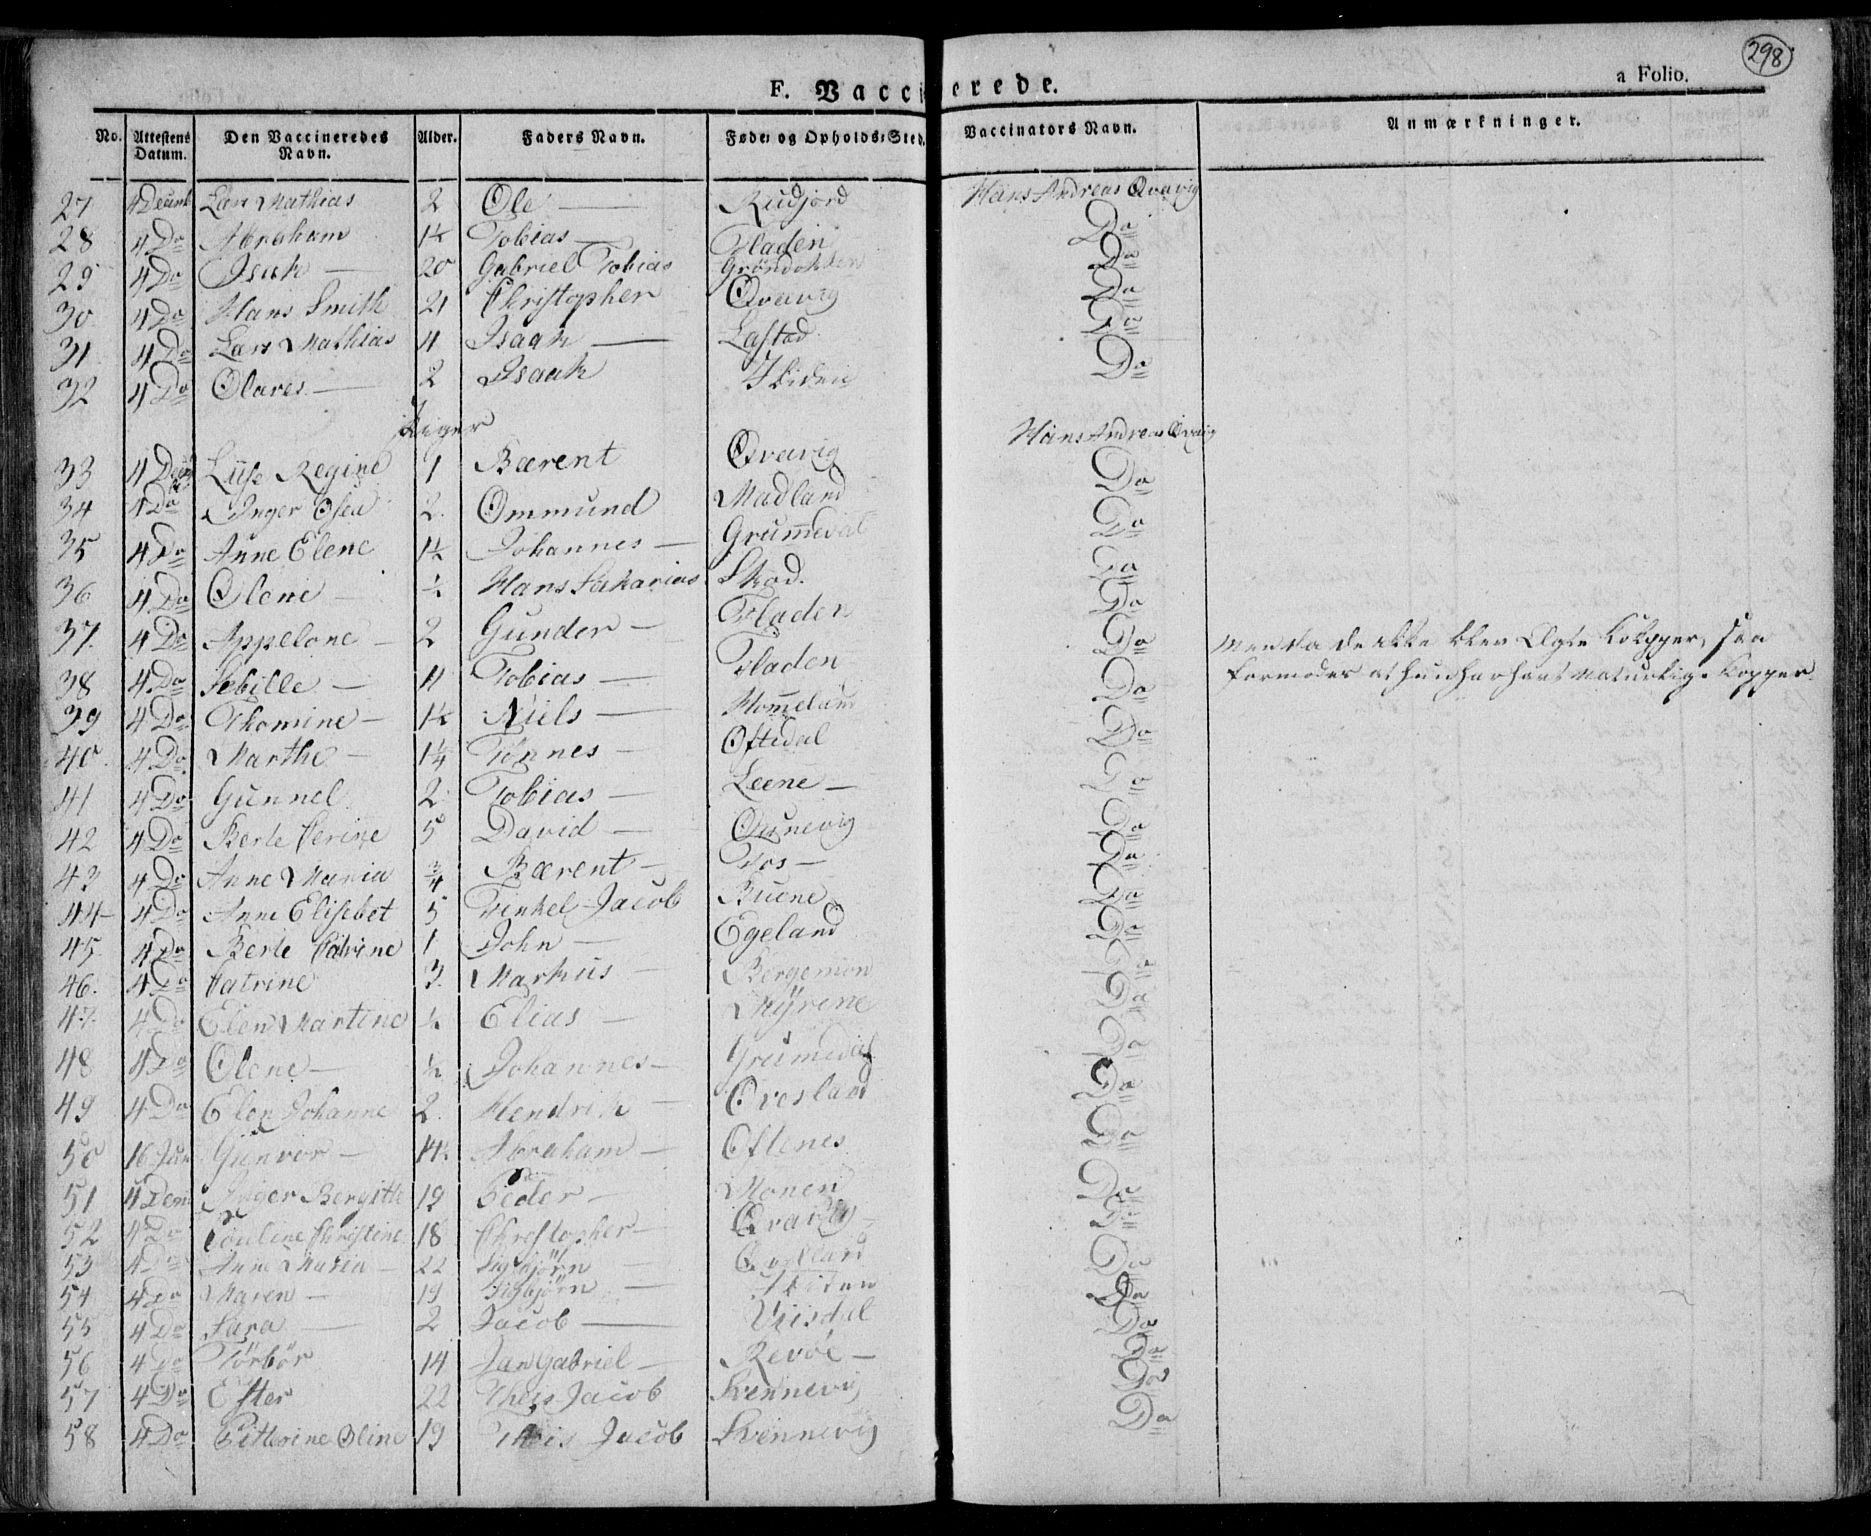 298
F. Vaccinerede.
a Folio.
No. Attestens Datum. Den Vaccineredes Navn. Alder. Faders Navn. Føde- og Opholds-Sted. Vaccinators Navn. Anmærkninger.
27 4 Lars Mathias 2 Ole — Rudjord Hans Andreas Qvavig
28 4 Do Abraham 1½ Tobias — Fladen Do
29 4 Do Isak — 20 Gabriel Tobias Do
30 4 Do Hans Smith 21 Christopher Qvavig Do
31 4 Do Lars Mathias 4 Isaak — Lastad Do
32 4 Do Olaves — 2 Isaak Do
Piger
33 4 Lise Regine 1 Bærent Qvavig Hans Andreas Qvavig
34 4 Do Inger Osea 2. Ommund Madland Do
35 4 Do Anne Elene 1½ Johannes — Grum̅edal Do
36 4 Do Olene — Hans Sakarias Skod. Do
37. 4 Do Appelone — 2 Gunder — Fladen Do
38 4 Do Sebille — 4 Tobias — Fladen Do Men da de ikke blev Ægte Kopper, saa formodes at hun har havt naturlig. Kopper.
39 4 Do Thomine — 1½ Niels — Hom̅elund Do
40. 4 Do Marthe — 1¼ Tønnes — Oftedal Do
41 4 Do Gunnel 2 Tobias — Leene — Do
42 4 Do Berte Serine 5 David — Do
43 4 Do Anne Maria ¾ Bærent — Fos — Do
44 4 Do Anne Elisebet 5 Tenkel Jacob Buene Do
45. 4 Do Berte Catrine 1 John — Egeland Do
46. 4 Do Catrine 3. Markus — Do
47. 4 Do Elen Martine ½ Elias — Myrene Do
48 4 Do Olene — ½ Johannes — Grumedal Do
49 4 Do Elen Johanne 2. Hendrik — Do
50 16 Jun Gunvor — Abraham — Oftenes Do
51 4 Inger Bergitte 19 Peder — Monen Do
52 4 Do Pouline Christine 18 Christopher — Qvavig — Do
53 4 Do Anne Maria — 22 Sigbjörn — Do
54 4 Do Maren — 19 Sigbjörn — Do
55 4 Do Sara — 2 Jacob — Do
56 4 Do Törbör 14 Jan Gabriel — Revöe — Do
57 4 Do Ester 22 Theis Jacob Svennevig Do
58 4 Do Pitterine Oline 19 Theis Jacob Svennevig Do